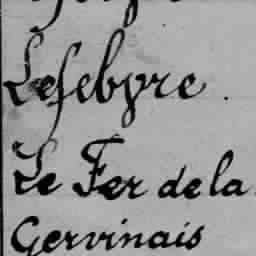 Lefebvre.
Le Fer de la
Gervinais